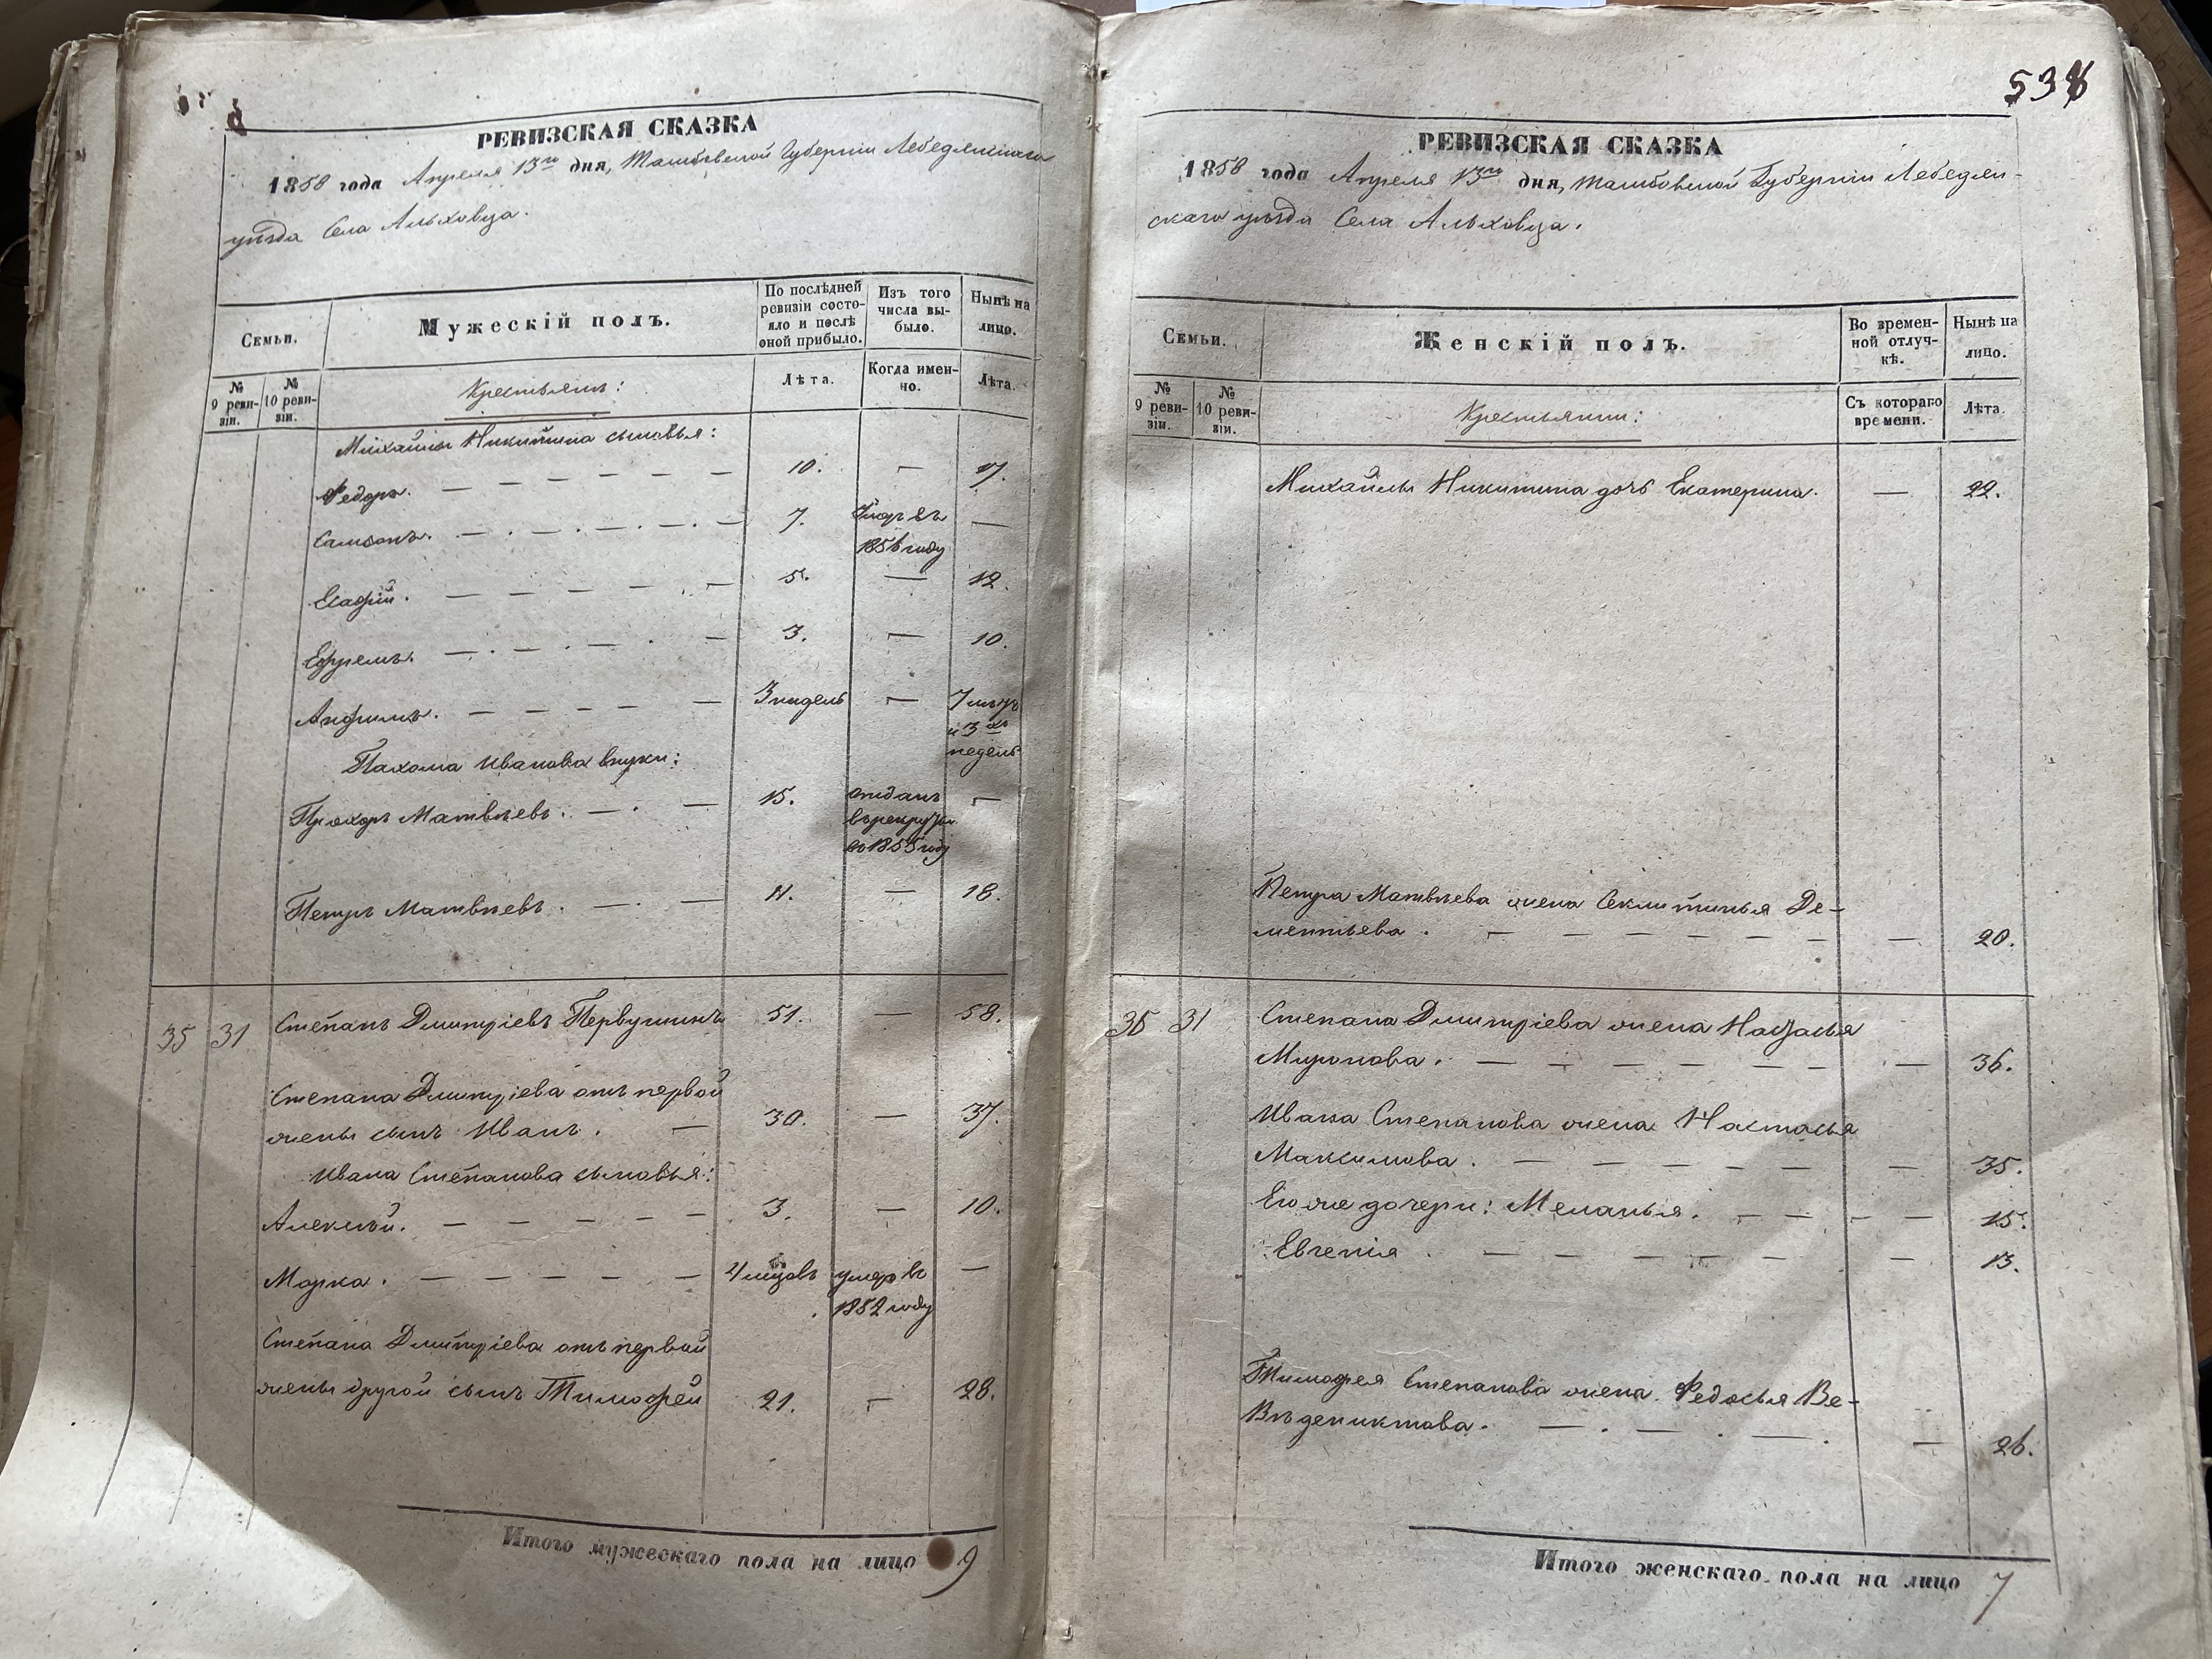 РЕВИЗСКАЯ СКАЗКА
1858 года Апреля 13го дня, Тамбовской Губернии Лебедянскаго
уѣзда Села Альховца.
Семьи.
Мужескій полъ.
По послѣдней ревизіи состо-
яло и послѣ
оной прибыло.
Изъ того
числа вы-
было.
Нынѣ на
лицо.
№
9 реви-
зіи.
№
10 реви-
зіи.
Крестьянъ:
Лѣта.
Когда имен-
но.
Лѣта.
Михайлы Никитина сыновья:
Федоръ. — — — — — — 10. — 17.
Самсонъ. — . — . — . — . — 7. Умеръ въ —
1856 году
Есафій. — — — — — 5. — 12.
Ефремъ. — . — . — . — 3. — 10.
Анфимъ. — — — — — 3 недель — 7 летъ
и 3хъ
недель
Пахома Иванова внуки:
Прохоръ Матвѣевъ. — . — 15. отданъ —
въ рекруты
въ 1855 году
Петръ Матвѣевъ. — . — 11. — 18.
35 31 Степанъ Дмитріевъ Первушинъ 51. — 58.
Степана Дмитріева отъ первой
жены сынъ Иванъ. — 30. — 37.
Ивана Степанова сыновья:
Алексѣй. — — — — — 3. — 10.
Марка. — — — — — 4 месцовъ умеръ въ —
1852 году
Степана Дмитріева отъ первой
жены другой сынъ Тимофей 21. — 28.
Итого мужескаго пола на лицо 9
538
РЕВИЗСКАЯ СКАЗКА
1858 года Апреля 13го дня, Тамбовской Губерніи Лебедян-
скаго уѣзда Села Альховца.
Семьи.
Женскій полъ.
Во времен-
ной отлуч-
кѣ.
Нынѣ на
лицо.
№
9 реви-
зіи.
№
10 реви-
зіи.
Крестьянки:
Съ котораго
времени.
Лѣта.
Михайлы Никитина дочь Екатерина. — 22.
Петра Матвѣева жена Секлитинья Де-
ментьева. — — — — — — — 20.
35 31 Степана Дмитріева жена Настасья
Миронова. — — — — — — — 36.
Ивана Степанова жена Настасья
Максимова. — — — — — — 35.
Его же дочери: Меланья. — — — — 15.
Евгенія. — — — — — — — 13.
Тимофея Степанова жена Федосья Ве-
Вѣдениктова. — . — . — . — 26.
Итого женскаго пола на лицо 7